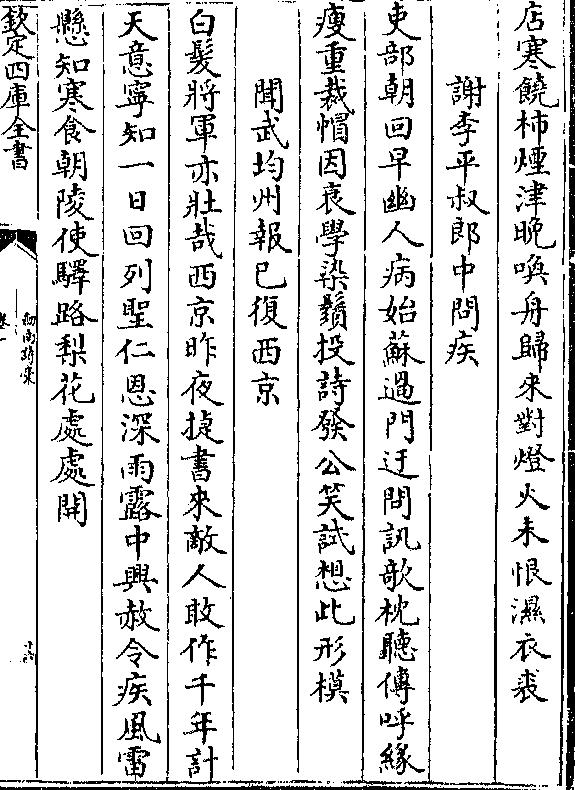 店寒饒柿煙津晚喚舟歸來對燈火未恨濕衣裘
謝李平叔郎中問疾
吏部朝回早幽人病始蘇過門迂問訊欹枕聽傳呼緣
瘦重裁帽因衰學染鬚投詩發公笑試想此形模
聞武均州報已復西京
白髮將軍亦壯哉西京昨夜捷書來敵人敢作千年計
天意寧知一日回列聖仁恩深雨露中興赦令疾風雷
懸知寒食朝陵使驛路梨花處處開
欽定四庫全書
劍南詩稾
卷一